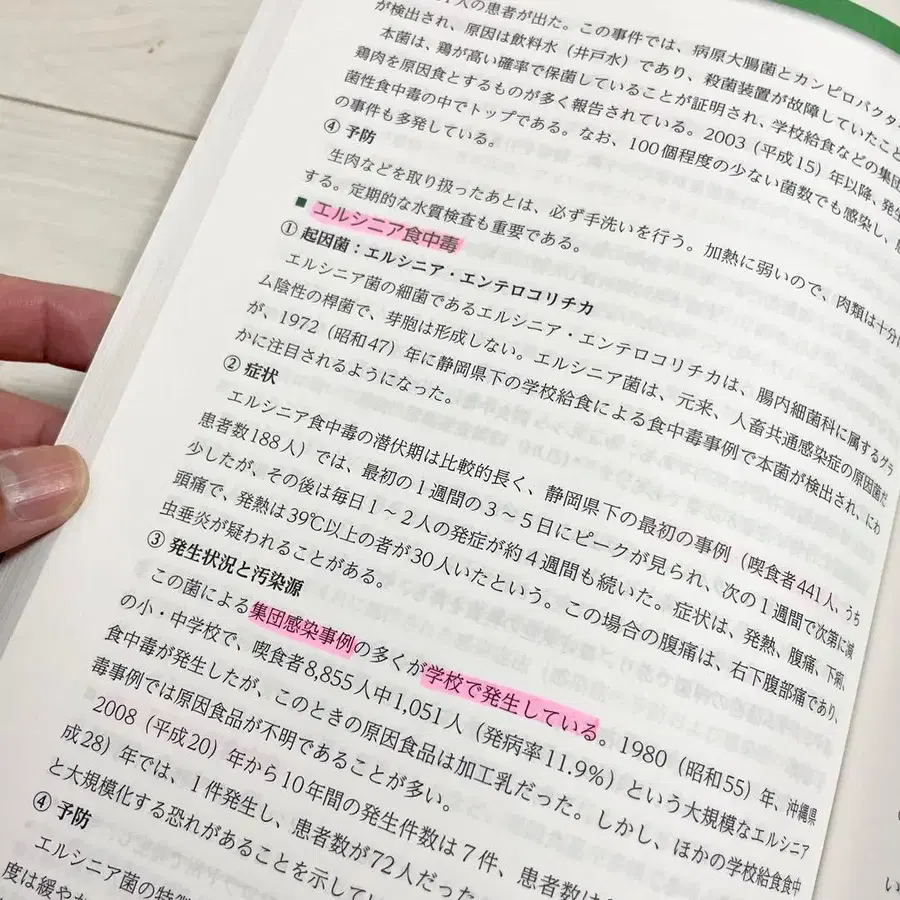 1人の患者が出た。この事件では、病原大腸菌とカンピロバクター
が検出され、原因は飲料水（井戸水）であり、殺菌装置が故障していたこと
本菌は、鶏が高い確率で保菌していることが証明され、学校給食などの集団
鶏肉を原因食とするものが多く報告されている。2003（平成15）年以降、発生
菌性食中毒の中でトップである。なお、100個程度の少ない菌数でも感染し、
の事件も多発している。
④ 予防
生肉などを取り扱ったあとは、必ず手洗いを行う。加熱に弱いので、肉類は十分
する。定期的な水質検査も重要である。
■ エルシニア食中毒
① 起因菌：エルシニア・エンテロコリチカ
エルシニア菌の細菌であるエルシニア・エンテロコリチカは、腸内細菌科に属するグラ
ム陰性の桿菌で、芽胞は形成しない。エルシニア菌は、元来、人畜共通感染症の原因菌だ
が、1972（昭和47）年に静岡県下の学校給食による食中毒事例で本菌が検出され、にわ
かに注目されるようになった。
② 症状
エルシニア食中毒の潜伏期は比較的長く、静岡県下の最初の事例（喫食者441人、うち
患者数188人）では、最初の1週間の3～5日にピークが見られ、次の1週間で次第に減
少したが、その後は毎日1～2人の発症が約4週間も続いた。症状は、発熱、腹痛、下痢、
頭痛で、発熱は39℃以上の者が30人いたという。この場合の腹痛は、右下腹部痛であり、
虫垂炎が疑われることがある。
③ 発生状況と汚染源
この菌による集団感染事例の多くが学校で発生している。1980（昭和55）年、沖縄県
の小・中学校で、喫食者8,855人中1,051人（発病率11.9%）という大規模なエルシニア
食中毒が発生したが、このときの原因食品は加工乳だった。しかし、ほかの学校給食食中
毒事例では原因食品が不明であることが多い。
2008（平成20）年から10年間の発生件数は7件、患者数は
成28）年では、1件発生し、患者数が72人だった
と大規模化する恐れがあることを示してい
④ 予防
エルシニア菌の特
度は緩やか
い